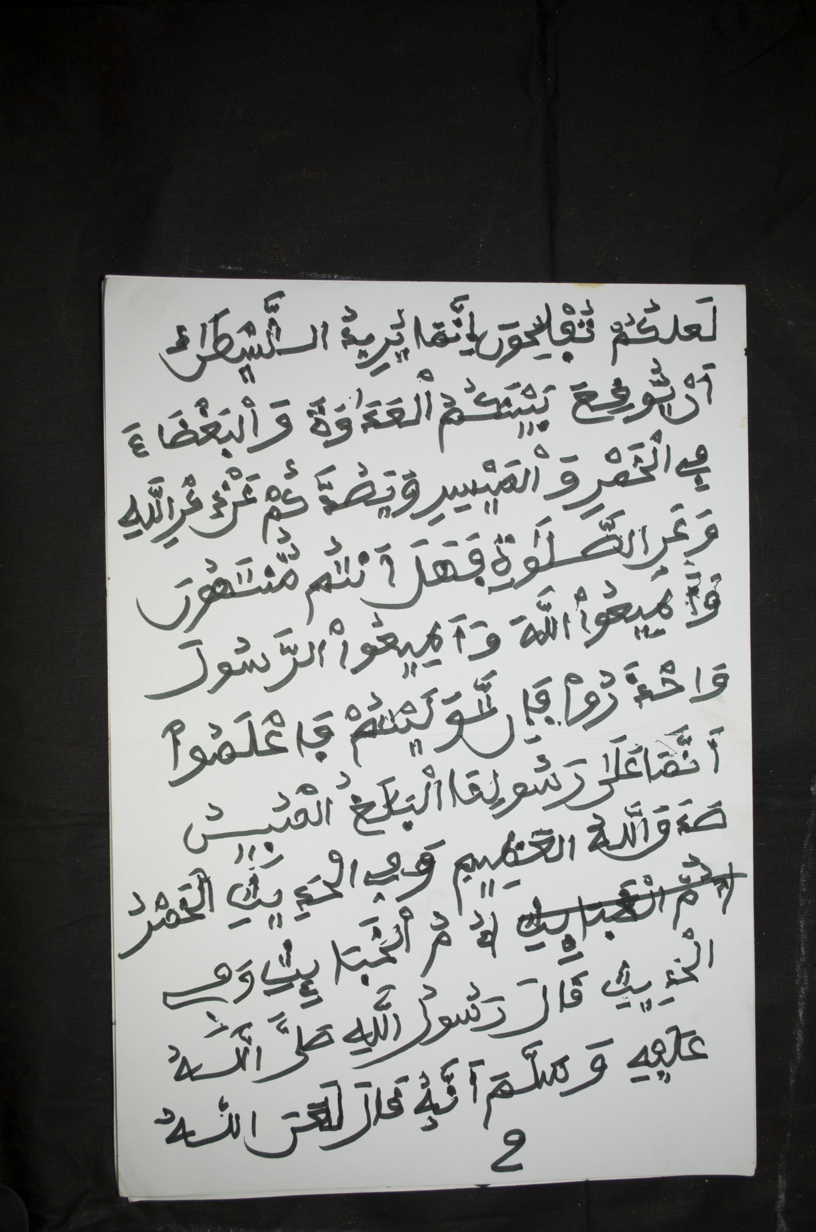 لَعَلَّكُمْ تُفْلِحُونَ إِنَّمَا يُرِيدُ الشَّيْطَنُ
أَنْ يُوقِعَ بَيْنَكُمُ الْعَدَاوَةَ وَالْبَغْضَاءَ
فِي الْخَمْرِ وَالْمَيْسِرِ وَيَصُدَّكُمْ عَنْ ذِكْرِ اللَّهِ
وَعَنِ الصَّلَوةِ فَهَلْ أَنْتُم مُّنتَهُونَ
وَأَطِيعُواْ اللَّهَ وَأَطِيعُواْ الرَّسُولَ
وَاحْذَرُواْ فَإِن تَوَلَّيْتُمْ فَاعْلَمُواْ
أَنَّمَا عَلَى رَسُولِنَا الْبَلَغُ الْمُبِينُ
صَدَقَ اللَّهُ الْعَظِيمِ وَفِي الْحَدِيثِ الْخَمْرُ
أُمُّ الْخَبَايِثِ أُمُّ الْخَبَايِثِ وَفِي
الْحَدِيثِ قَالَ رَسُولُ اللَّهِ صَلَّى اللَّهُ
عَلَيْهِ وَسَلَّمَ أَنَّهُ قَالَ لَعَنَ اللَّهُ
2